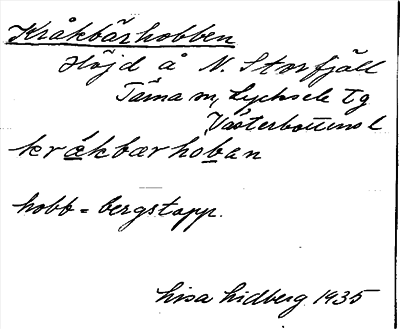 Kråkbärhobben
Höjd å N. Storfjäll
Tärna sn, Lycksele tg
Västerbottens l
kråkbærhoban
hobb = bergstopp.
Lisa Lidberg 1935